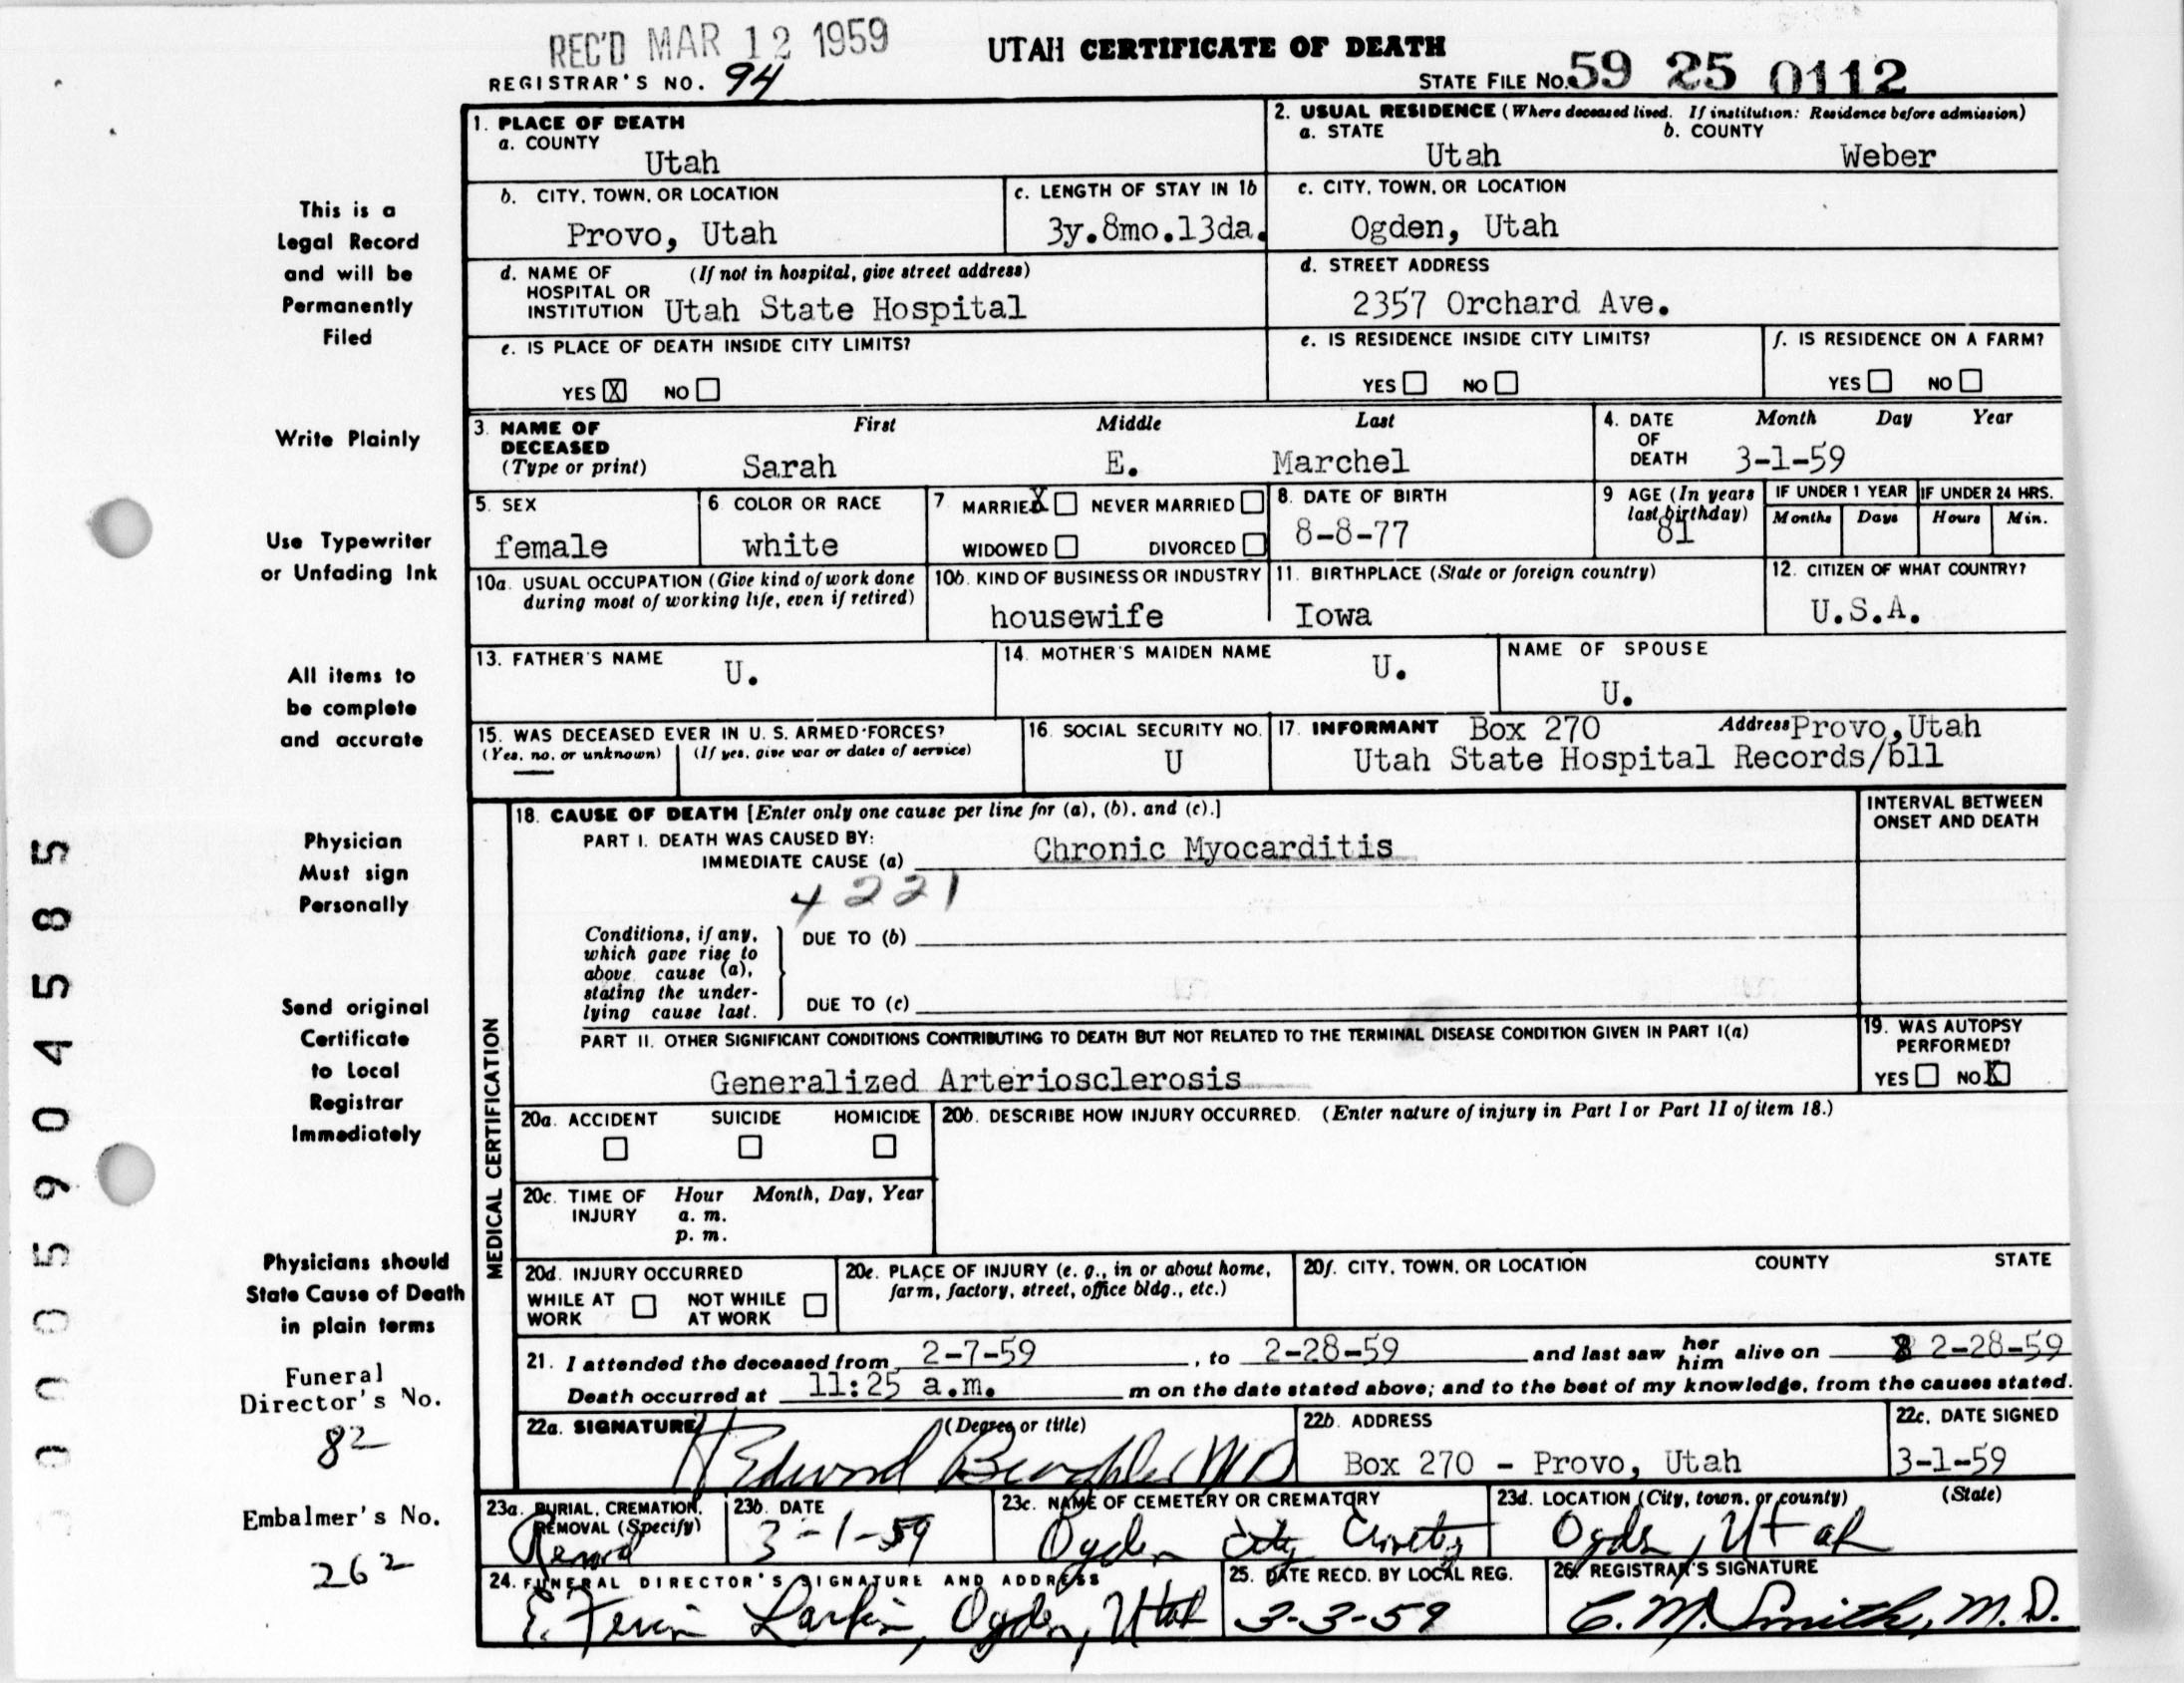 REC'D MAR 12 1959
UTAH CERTIFICATE OF DEATH
REGISTRAR'S NO. 94
STATE FILE NO. 59 25 0112
1. PLACE OF DEATH
a. COUNTY
Utah
2. USUAL RESIDENCE (Where deceased lived. If institution: Residence before admission)
a. STATE b. COUNTY
Utah Weber
b. CITY, TOWN, OR LOCATION
Provo, Utah
c. LENGTH OF STAY IN 1b
3y.8mo.13da.
c. CITY, TOWN, OR LOCATION
Ogden, Utah
d. NAME OF HOSPITAL OR INSTITUTION (If not in hospital, give street address)
Utah State Hospital
d. STREET ADDRESS
2357 Orchard Ave.
e. IS PLACE OF DEATH INSIDE CITY LIMITS?
YES X NO
e. IS RESIDENCE INSIDE CITY LIMITS?
YES NO
f. IS RESIDENCE ON A FARM?
YES NO
3. NAME OF DECEASED (Type or print)
First Middle Last
Sarah E. Marchel
4. DATE OF DEATH Month Day Year
3-1-59
5. SEX
female
6 COLOR OR RACE
white
7 MARRIED X NEVER MARRIED
WIDOWED DIVORCED
8. DATE OF BIRTH
8-8-77
9 AGE (In years last birthday)
81
IF UNDER 1 YEAR
Months Days
IF UNDER 24 HRS.
Hours Min.
10a. USUAL OCCUPATION (Give kind of work done during most of working life, even if retired)
10b. KIND OF BUSINESS OR INDUSTRY
housewife
11. BIRTHPLACE (State or foreign country)
Iowa
12. CITIZEN OF WHAT COUNTRY?
U.S.A.
13. FATHER'S NAME
U.
14. MOTHER'S MAIDEN NAME
U.
NAME OF SPOUSE
U.
15. WAS DECEASED EVER IN U. S. ARMED FORCES?
(Yes, no, or unknown) (If yes, give war or dates of service)
16. SOCIAL SECURITY NO.
U
17. INFORMANT Box 270 Address Provo, Utah
Utah State Hospital Records/bll
MEDICAL CERTIFICATION
18. CAUSE OF DEATH [Enter only one cause per line for (a), (b), and (c).]
INTERVAL BETWEEN ONSET AND DEATH
PART I. DEATH WAS CAUSED BY:
IMMEDIATE CAUSE (a) Chronic Myocarditis
4221
Conditions, if any, which gave rise to above cause (a), stating the underlying cause last.
DUE TO (b)
DUE TO (c)
PART II. OTHER SIGNIFICANT CONDITIONS CONTRIBUTING TO DEATH BUT NOT RELATED TO THE TERMINAL DISEASE CONDITION GIVEN IN PART I(a)
Generalized Arteriosclerosis
19. WAS AUTOPSY PERFORMED?
YES NO X
20a. ACCIDENT SUICIDE HOMICIDE
20b. DESCRIBE HOW INJURY OCCURRED. (Enter nature of injury in Part I or Part II of item 18.)
20c. TIME OF INJURY Hour Month, Day, Year
a. m.
p. m.
20d. INJURY OCCURRED
WHILE AT WORK NOT WHILE AT WORK
20e. PLACE OF INJURY (e. g., in or about home, farm, factory, street, office bldg., etc.)
20f. CITY, TOWN, OR LOCATION COUNTY STATE
21. I attended the deceased from 2-7-59, to 2-28-59 and last saw her him alive on 2-28-59
Death occurred at 11:25 a.m. m on the date stated above; and to the best of my knowledge, from the causes stated.
22a. SIGNATURE (Degree or title)
Edward MD
22b. ADDRESS
Box 270 - Provo, Utah
22c. DATE SIGNED
3-1-59
23a. BURIAL, CREMATION, REMOVAL (Specify)
23b. DATE
3-1-59
23c. NAME OF CEMETERY OR CREMATORY
Ogden City
23d. LOCATION (City, town, or county) (State)
Ogden, Utah
24. FUNERAL DIRECTOR'S SIGNATURE AND ADDRESS
Larkin, Ogden, Utah
25. DATE RECD. BY LOCAL REG.
3-3-59
26. REGISTRAR'S SIGNATURE
C. M. Smith, M.D.
This is a
Legal Record
and will be
Permanently
Filed
Write Plainly
Use Typewriter
or Unfading Ink
All items to
be complete
and accurate
Physician
Must sign
Personally
Send original
Certificate
to Local
Registrar
Immediately
Physicians should
State Cause of Death
in plain terms
Funeral
Director's No.
82
Embalmer's No.
262
000 5904585